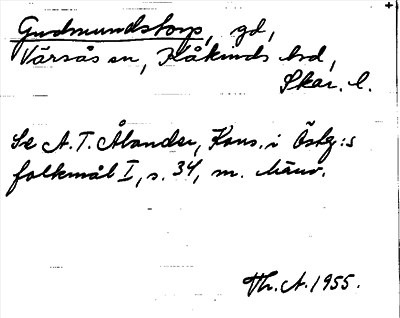 Gudmundstorp, gd,
Värsås sn, Kåkinds hd,
Skar. l.
Se A. T. Ålander, Kons. i Östg:s
folkmål I, s. 34, m. hänv.
Th. A. 1955.